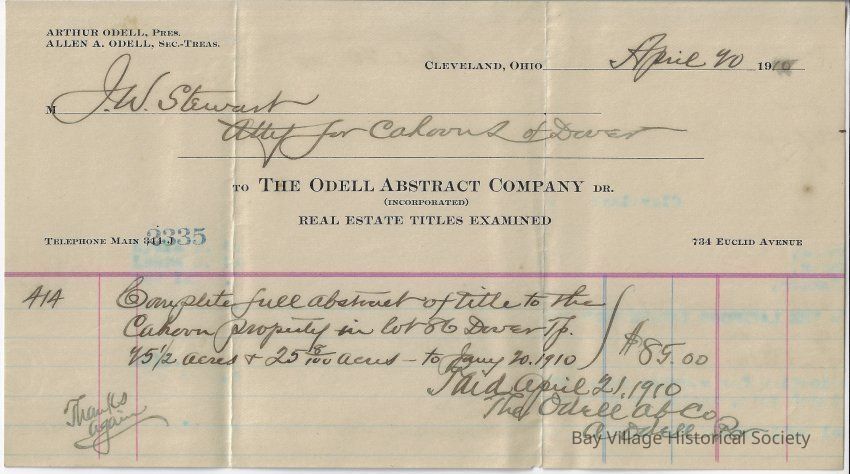 ARTHUR ODELL, PRES.
ALLEN A. ODELL, SEC.-TREAS.
CLEVELAND, OHIO April 20 1910
M J. W. Stewart
Atty for Cahoons of Dover
TO THE ODELL ABSTRACT COMPANY DR.
(INCORPORATED)
REAL ESTATE TITLES EXAMINED
TELEPHONE MAIN 3335
734 EUCLID AVENUE
414 Complete full abstract of title to the
Cahoon property in lot 86 Dover Tp.
95 1/2 acres & 25 8/100 acres - to Jany 20. 1910 $85.00
Paid April 21, 1910
The Odell Ab Co
A. Odell Pr
Thanks
again
Bay Village Historical Society